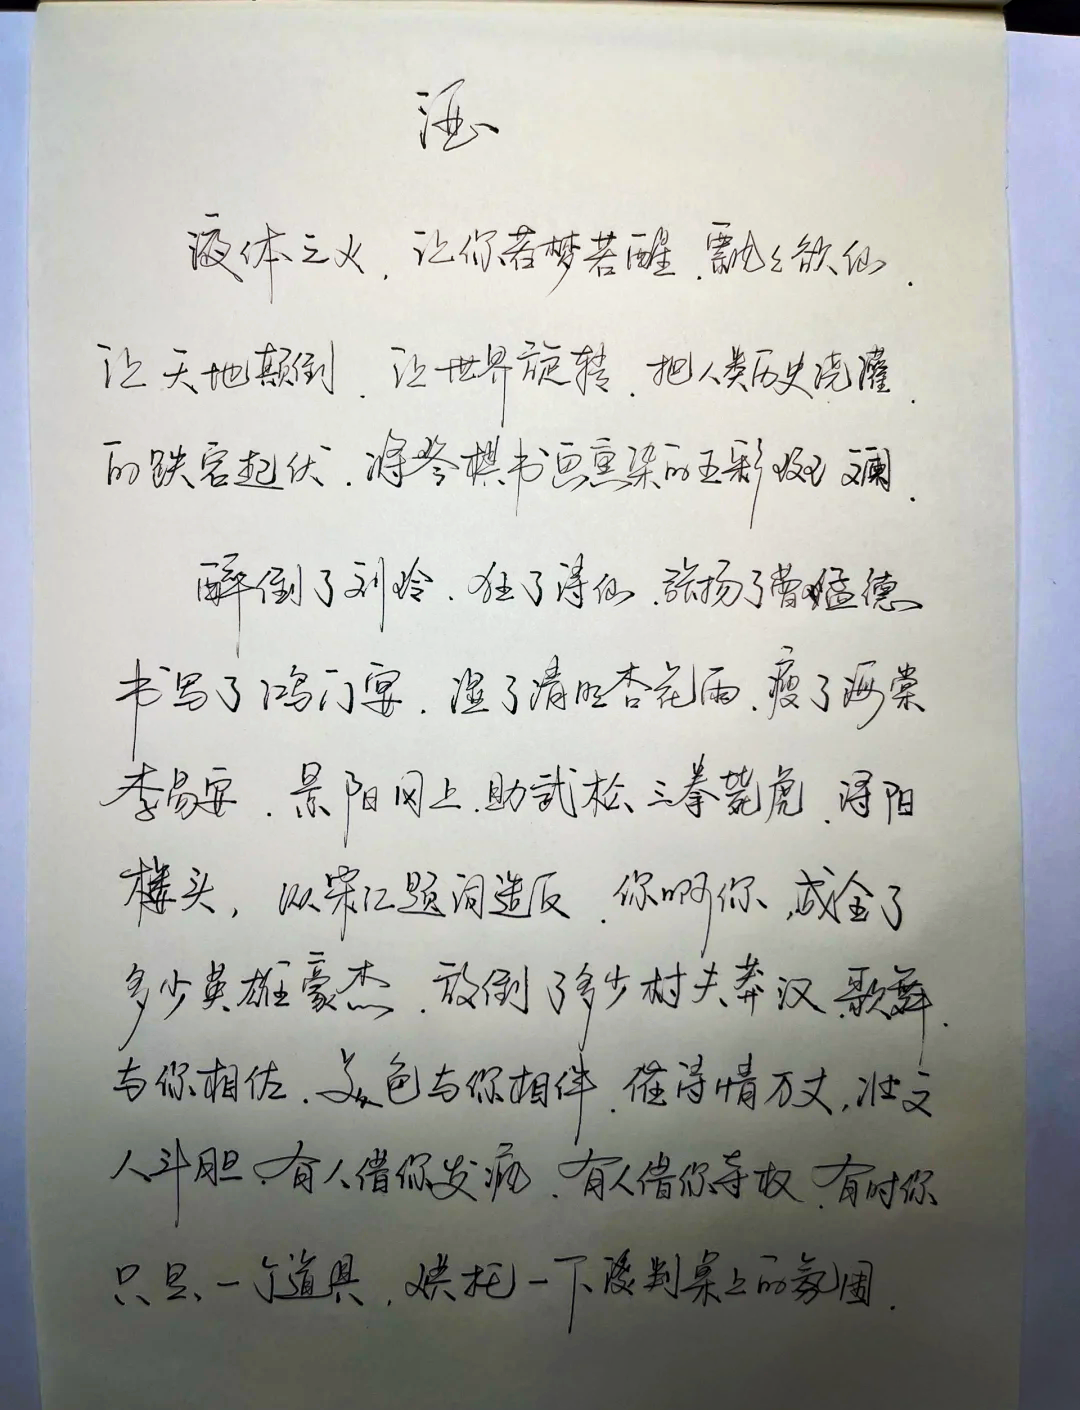 酒
液体之火，让你若梦若醒，飘飘欲仙，
让天地颠倒，让世界旋转，把人类历史浇灌
的跌宕起伏，将琴棋书画熏染的五彩斑斓。
醉倒了刘玲，狂了诗仙，张扬了曹孟德
书写了鸿门宴，湿了清明杏花雨，瘦了海棠
李易安，景阳冈上，助武松三拳毙虎，浔阳
楼头，以宋江题词造反，你啊你，成全了
多少英雄豪杰，放倒了多少村夫莽汉，歌舞
与你相佐，美色与你相伴，催诗情万丈，壮文
人斗胆，有人借你发疯，有人借你夺权，有时你
只是一个道具，烘托一下谈判桌上的氛围。